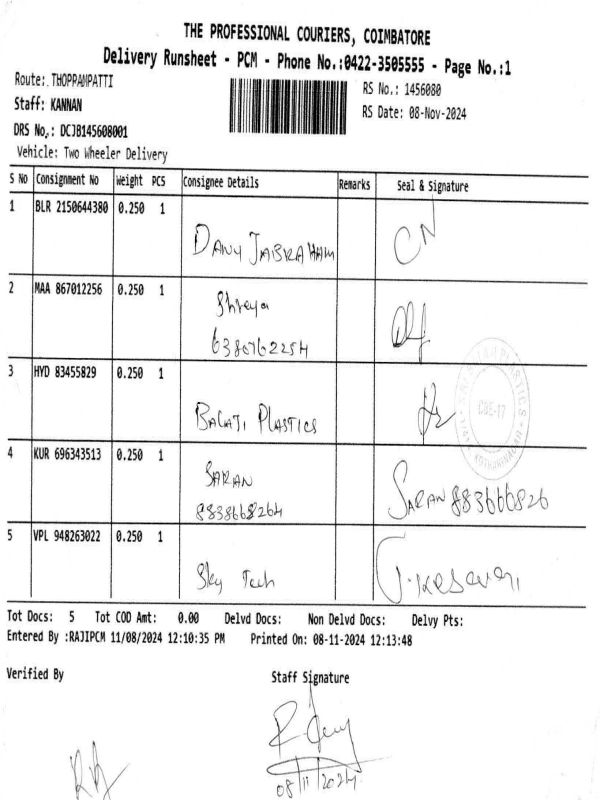 THE PROFESSIONAL COURIERS, COIMBATORE
Delivery Runsheet - PCM - Phone No.:0422-3505555 - Page No.:1
Route: THOPPAMPATTI
RS No.: 1456080
Staff: KANNAN
RS Date: 08-Nov-2024
DRS No.: DCJB145608001
Vehicle: Two Wheeler Delivery
S No Consignment No Weight PCS Consignee Details Remarks Seal & Signature
1 BLR 2150644380 0.250 1 DANY JABRAHAM CN
2 MAA 867012256 0.250 1 Shreya
6380762254
3 HYD 83455829 0.250 1 BALAJI PLASTICS
PLASTICS CBE-17
4 KUR 696343513 0.250 1 SARAN
8838668264 SARAN 883666826
5 VPL 948263022 0.250 1 Sky Tech
Tot Docs: 5 Tot COD Amt: 0.00 Delvd Docs: Non Delvd Docs: Delvy Pts:
Entered By :RAJIPCM 11/08/2024 12:10:35 PM Printed On: 08-11-2024 12:13:48
Verified By Staff Signature
08/11/2024